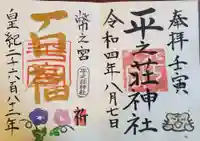 奉拝 壬寅
平之荘神社
令和四年八月七日
幣之宮
祈
皇紀二千六百八十二年